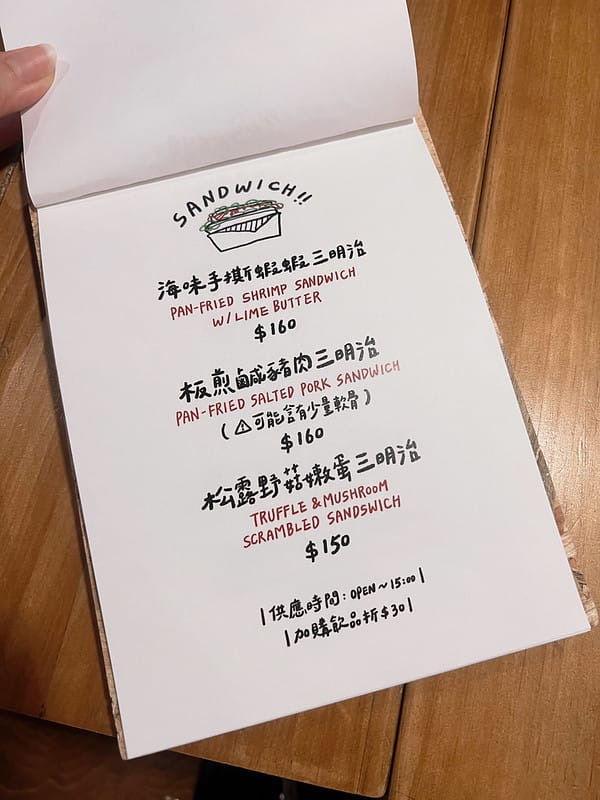 SANDWICH!!
海味手撕蝦蝦三明治
PAN-FRIED SHRIMP SANDWICH
W/ LIME BUTTER
$160
板煎鹹豬肉三明治
PAN-FRIED SALTED PORK SANDWICH
(⚠可能含有少量軟骨)
$160
松露野菇嫩蛋三明治
TRUFFLE & MUSHROOM
SCRAMBLED SANDSWICH
$150
|供應時間:OPEN~15:00|
|加購飲品折$30|